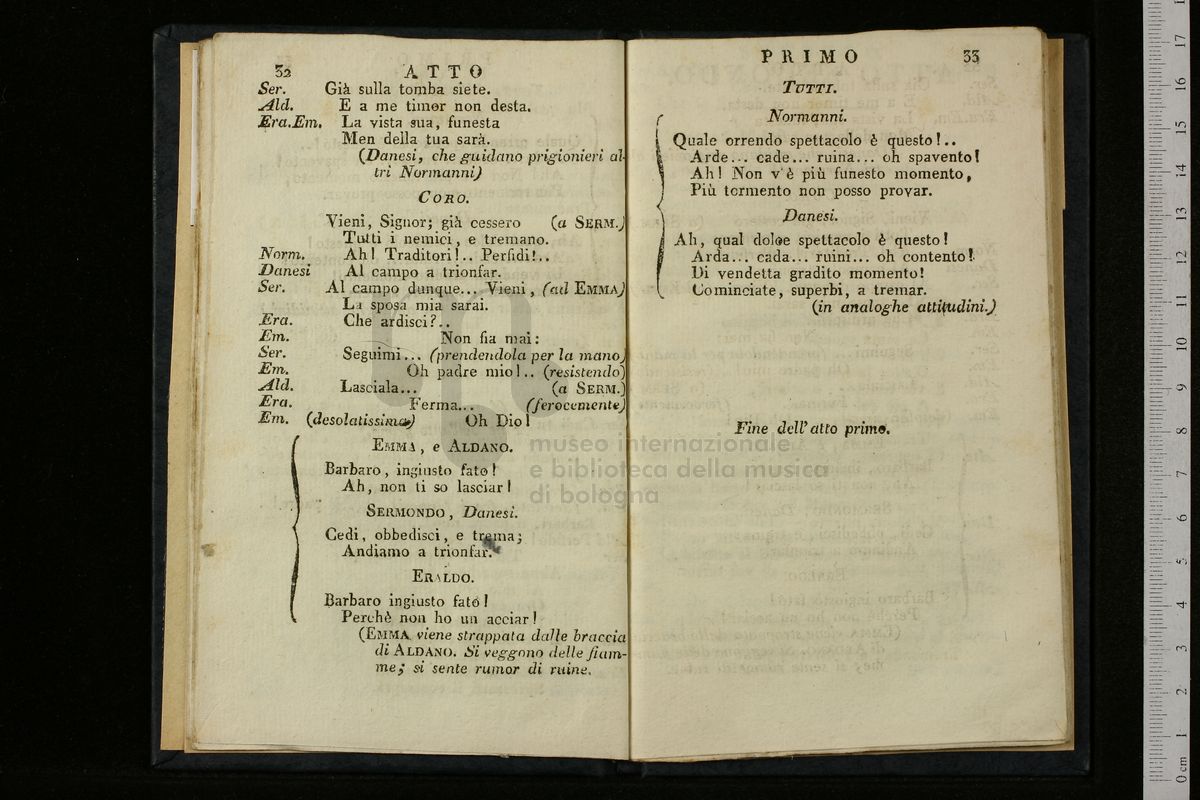 32 ATTO
Ser. Già sulla tomba siete.
Ald. E a me timor non desta.
Era.Em. La vista sua, funesta
Men della tua sarà.
(Danesi, che guidano prigionieri al-
tri Normanni)
CORO.
Vieni, Signor; già cessero (a SERM.)
Tutti i nemici, e tremano.
Norm. Ah! Traditori!.. Perfidi!..
Danesi Al campo a trionfar.
Ser. Al campo dunque... Vieni, (ad EMMA)
La sposa mia sarai.
Era. Che ardisci?..
Em. Non fia mai:
Ser. Seguimi... (prendendola per la mano)
Em. Oh padre mio!.. (resistendo)
Ald. Lasciala... (a SERM.)
Era. Ferma... (ferocemente)
Em. (desolatissima) Oh Dio!
EMMA, e ALDANO.
Barbaro, ingiusto fato!
Ah, non ti so lasciar!
SERMONDO, Danesi.
Cedi, obbedisci, e trema;
Andiamo a trionfar.
ERALDO.
Barbaro ingiusto fato!
Perchè non ho un acciar!
(EMMA viene strappata dalle braccia
di ALDANO. Si veggono delle fiam-
me; si sente rumor di ruine.
PRIMO 33
TUTTI.
Normanni.
Quale orrendo spettacolo è questo!..
Arde... cade... ruina... oh spavento!
Ah! Non v'è più funesto momento,
Più tormento non posso provar.
Danesi.
Ah, qual dolce spettacolo è questo!
Arda... cada... ruini... oh contento!
Di vendetta gradito momento!
Cominciate, superbi, a tremar.
(in analoghe attitudini.)
Fine dell'atto primo.
museo internazionale
e biblioteca della musica
di bologna
0 cm 1 2 3 4 5 6 7 8 9 10 11 12 13 14 15 16 17